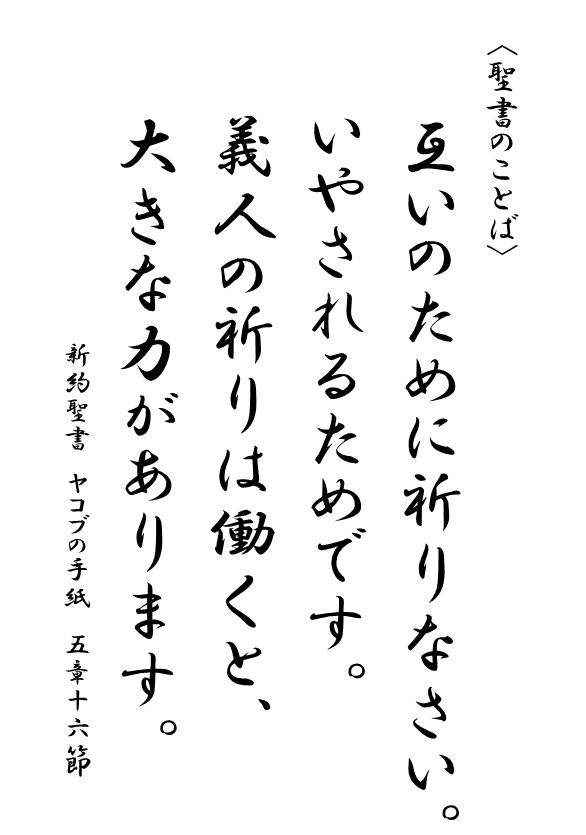 〈聖書のことば〉
互いのために祈りなさい。
いやされるためです。
義人の祈りは働くと、
大きな力があります。
新約聖書　ヤコブの手紙　五章十六節